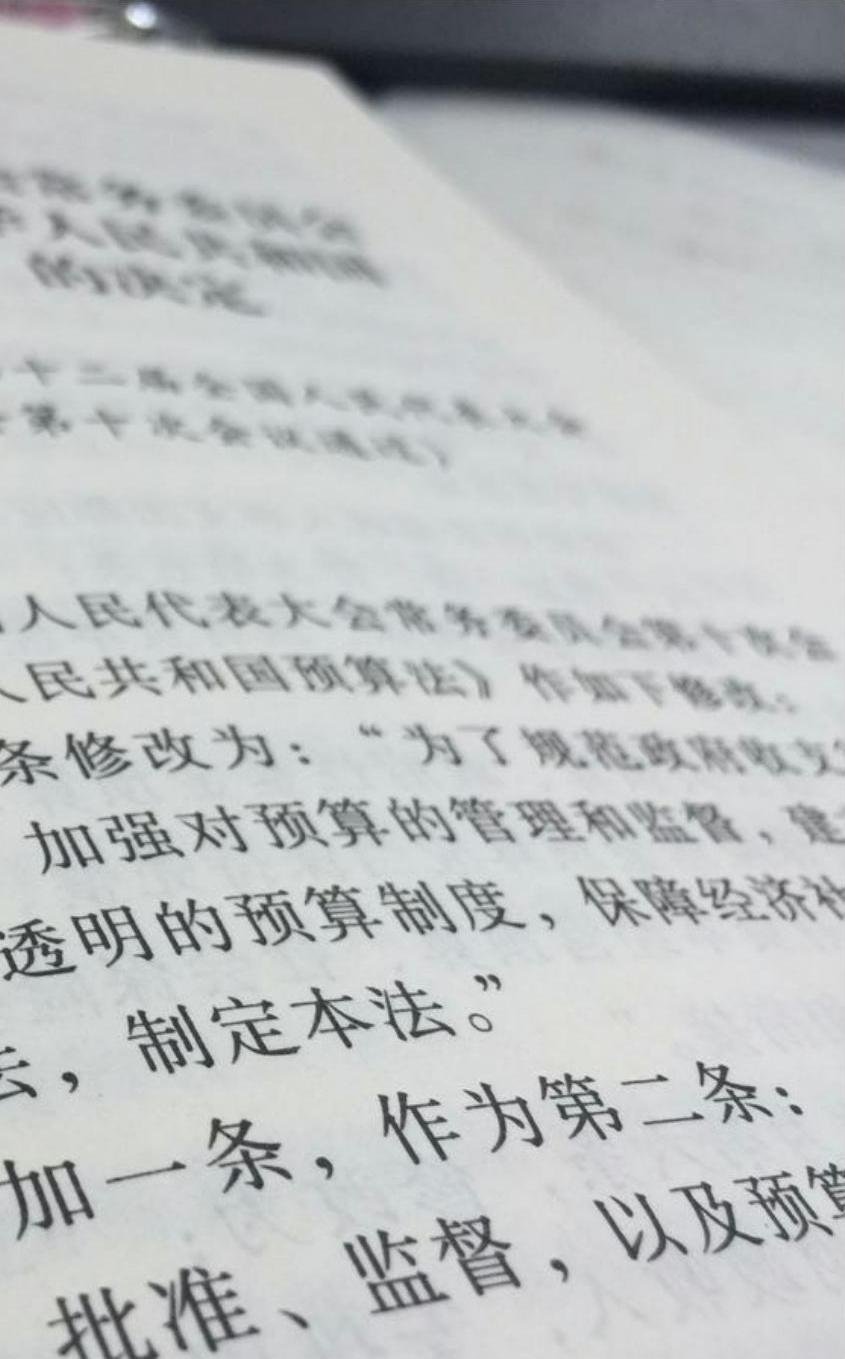 人民共和国
的决定
十二届全国人民代表大会
第十次会议通过）
人民代表大会常务委员会第十次会
人民共和国预算法》作如下修改：
条修改为：“为了规范政府收支
加强对预算的管理和监督，建
透明的预算制度，保障经济社
法，制定本法。”
加一条，作为第二条：
批准、监督，以及预算